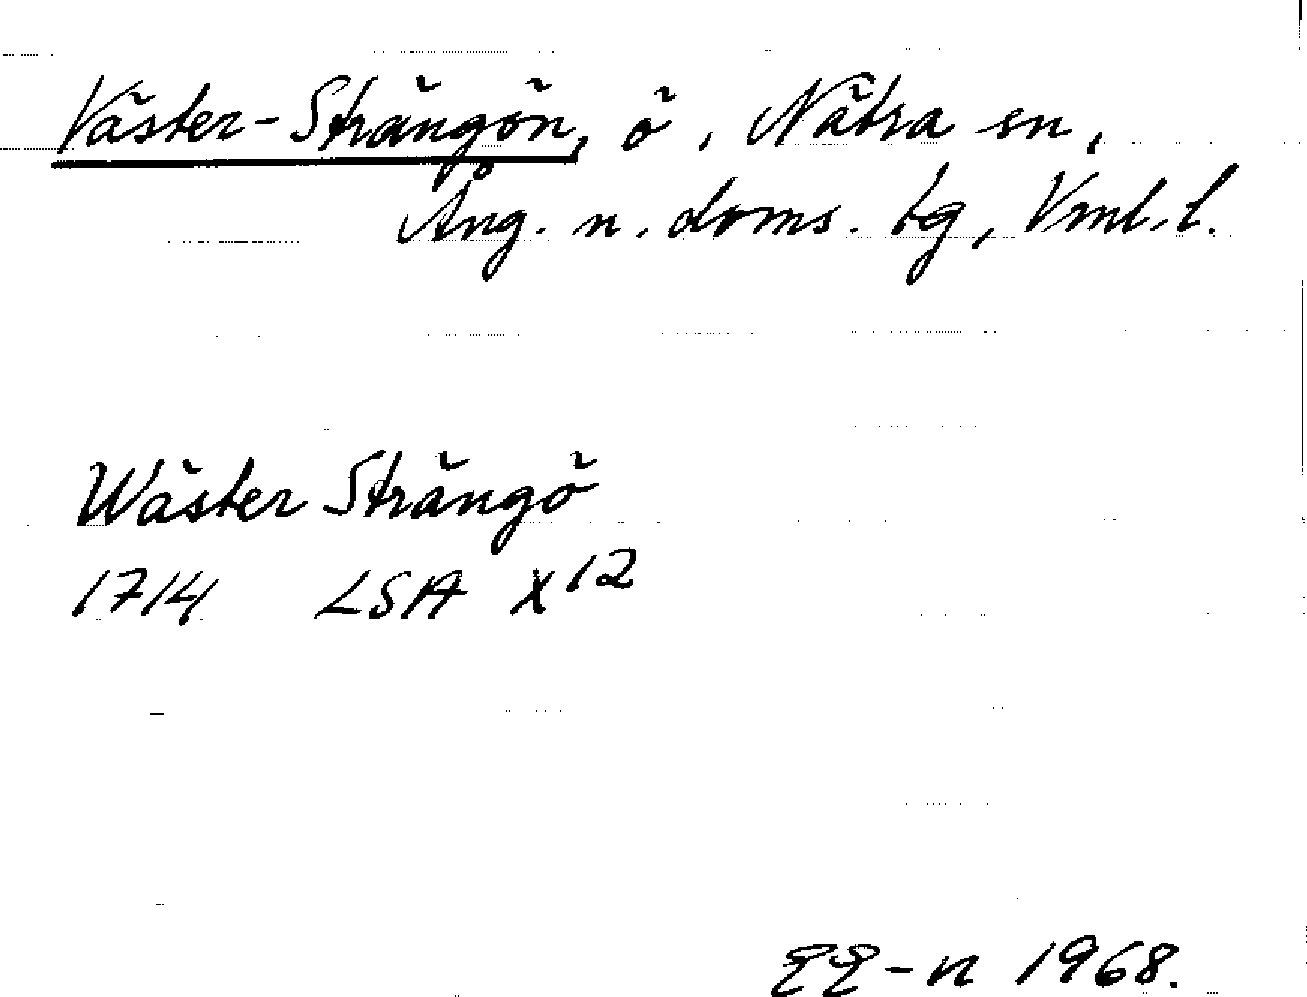 Väster-Strängön, ö, Nätra sn,
Ång. n. doms. tg, Vml. l.
Wäster Strängö
1714 LSA X12
EE-n 1968.